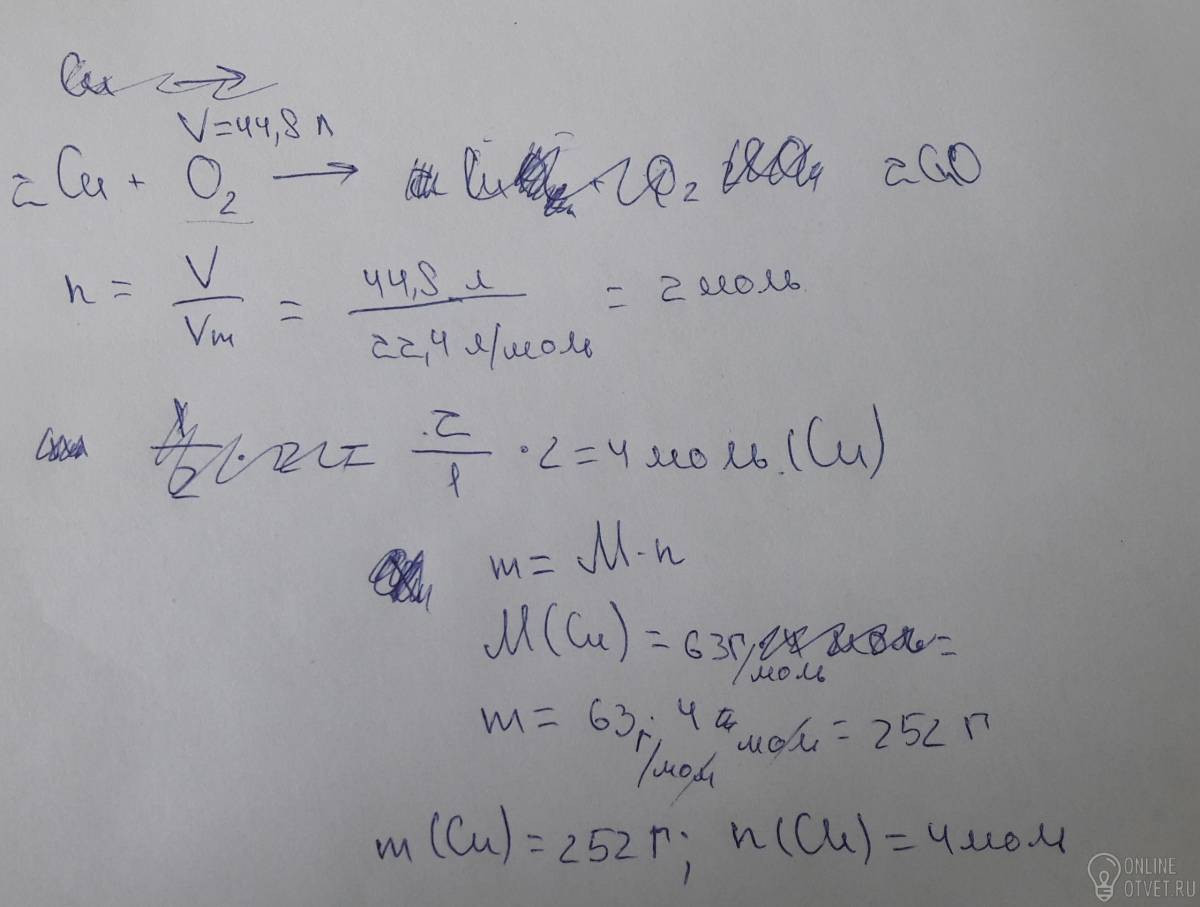 V=44,8 л
2Cu + O2 → 2CuO
n = V/Vm = 44,8 л / 22,4 л/моль = 2 моль
2/1 · 2 = 4 моль (Cu)
m = M · n
M(Cu) = 63 г/моль =
m = 63 г/моль · 4 моль = 252 г
m(Cu) = 252 г; n(Cu) = 4 моль
ONLINE
OTVET.RU